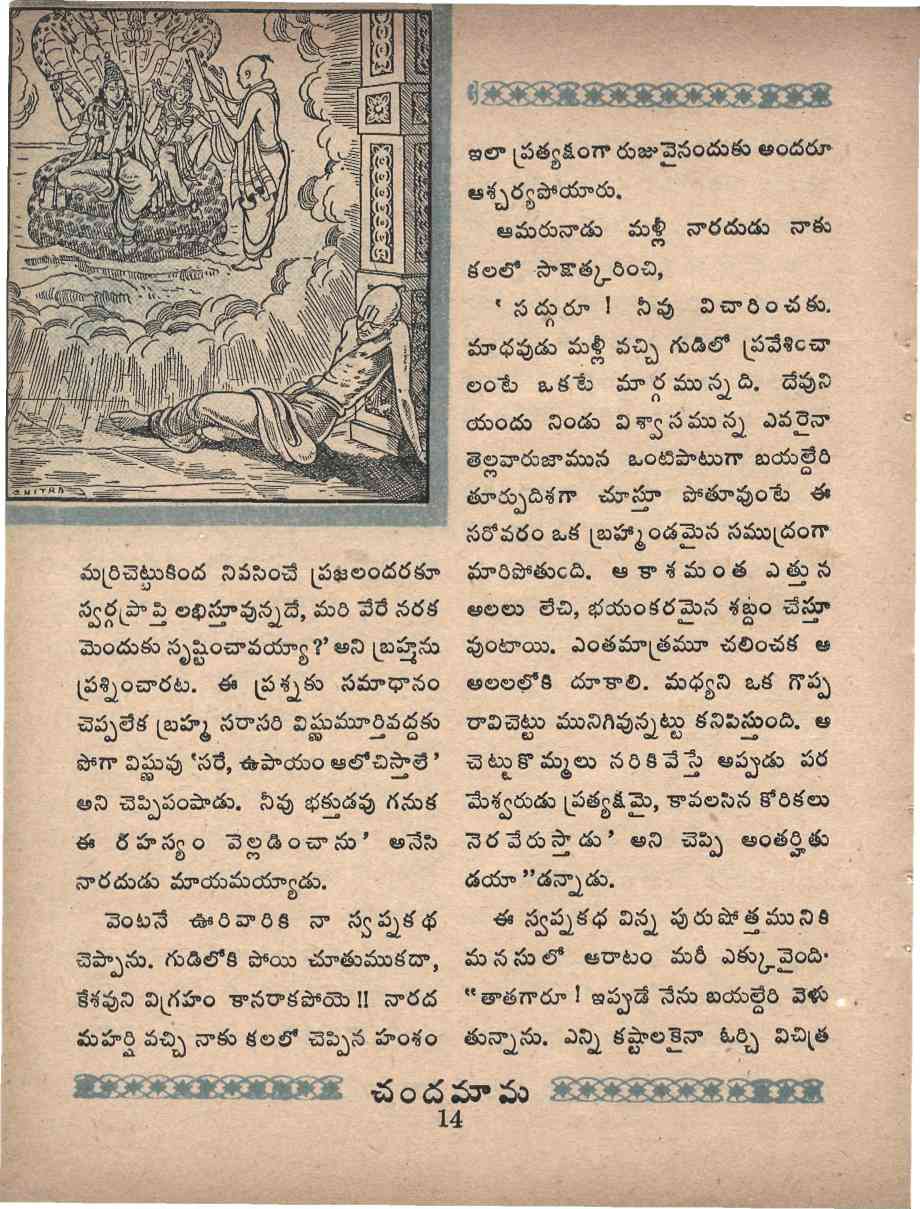 CHITRA
మర్రిచెట్టుకింద నివసించే ప్రజలందరకూ
స్వర్గప్రాప్తి లభిస్తూవున్నదే, మరి వేరే నరక
మెందుకు సృష్టించావయ్యా?' అని బ్రహ్మను
ప్రశ్నించారట. ఈ ప్రశ్నకు సమాధానం
చెప్పలేక బ్రహ్మ సరాసరి విష్ణుమూర్తివద్దకు
పోగా విష్ణువు 'సరే, ఉపాయం ఆలోచిస్తాలే'
అని చెప్పిపంపాడు. నీవు భక్తుడవు గనుక
ఈ రహస్యం వెల్లడించాను' అనేసి
నారదుడు మాయమయ్యాడు.
వెంటనే ఊరివారికి నా స్వప్నకథ
చెప్పాను. గుడిలోకి పోయి చూతుముకదా,
కేశవుని విగ్రహం కానరాకపోయె!! నారద
మహర్షి వచ్చి నాకు కలలో చెప్పిన హంశం
ఇలా ప్రత్యక్షంగా రుజువైనందుకు అందరూ
ఆశ్చర్యపోయారు.
ఆమరునాడు మళ్లీ నారదుడు నాకు
కలలో సాక్షాత్కరించి,
'సద్గురూ! నీవు విచారించకు.
మాధవుడు మళ్లీ వచ్చి గుడిలో ప్రవేశించా
లంటే ఒకటే మార్గమున్నది. దేవుని
యందు నిండు విశ్వాసమున్న ఎవరైనా
తెల్లవారుజామున ఒంటిపాటుగా బయల్దేరి
తూర్పుదిశగా చూస్తూ పోతూవుంటే ఈ
సరోవరం ఒక బ్రహ్మాండమైన సముద్రంగా
మారిపోతుంది. ఆకాశమంత ఎత్తున
అలలు లేచి, భయంకరమైన శబ్దం చేస్తూ
వుంటాయి. ఎంతమాత్రమూ చలించక ఆ
అలలలోకి దూకాలి. మధ్యని ఒక గొప్ప
రావిచెట్టు మునిగివున్నట్టు కనిపిస్తుంది. ఆ
చెట్టుకొమ్మలు నరికివేస్తే అప్పుడు పర
మేశ్వరుడు ప్రత్యక్షమై, కావలసిన కోరికలు
నెరవేరుస్తాడు' అని చెప్పి అంతర్హితు
డయా"డన్నాడు.
ఈ స్వప్నకథ విన్న పురుషోత్తమునికి
మనసులో ఆరాటం మరీ ఎక్కువైంది.
"తాతగారూ! ఇప్పుడే నేను బయల్దేరి వెళు
తున్నాను. ఎన్ని కష్టాలకైనా ఓర్చి విచిత్ర
చందమామ
14